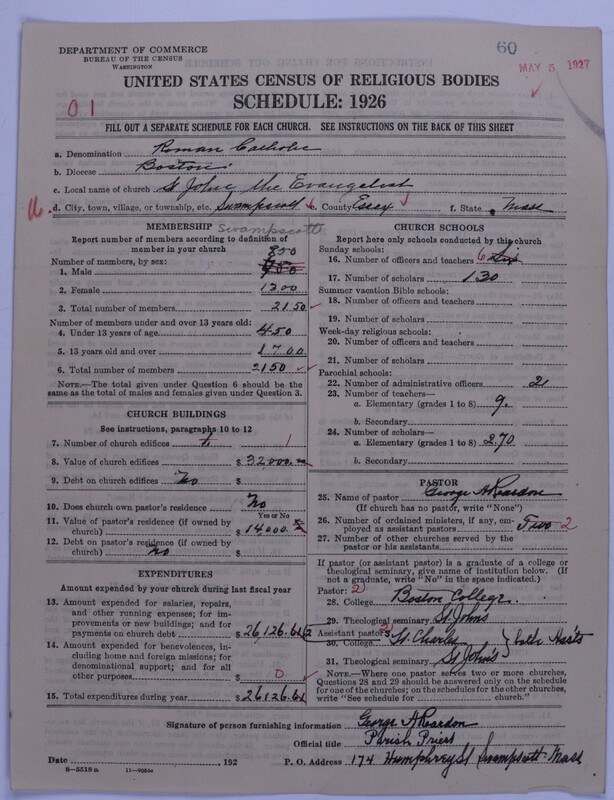 DEPARTMENT OF COMMERCE
BUREAU OF THE CENSUS
WASHINGTON
60
MAY 5 1927
UNITED STATES CENSUS OF RELIGIOUS BODIES
SCHEDULE: 1926
01
FILL OUT A SEPARATE SCHEDULE FOR EACH CHURCH. SEE INSTRUCTIONS ON THE BACK OF THIS SHEET
a. Denomination Roman Catholic
b. Diocese Boston
c. Local name of church St Johns the Evangelist
d. City, town, village, or township, etc. Swampscott e. County Essex f. State Mass
MEMBERSHIP Swampscott
Report number of members according to definition of member in your church
Number of members, by sex: 850
1. Male
2. Female 1300
3. Total number of members 2150
Number of members under and over 13 years old:
4. Under 13 years of age 450
5. 13 years old and over 1700
6. Total number of members 2150
NOTE.—The total given under Question 6 should be the same as the total of males and females given under Question 3.
CHURCH BUILDINGS
See instructions, paragraphs 10 to 12
7. Number of church edifices 1
8. Value of church edifices $ 32000
9. Debt on church edifices No $
10. Does church own pastor's residence No
Yes or No
11. Value of pastor's residence (if owned by church) $ 14,000
12. Debt on pastor's residence (if owned by church) No $
EXPENDITURES
Amount expended by your church during last fiscal year
13. Amount expended for salaries, repairs, and other running expenses; for improvements or new buildings; and for payments on church debt $ 26,126.61
14. Amount expended for benevolences, including home and foreign missions; for denominational support; and for all other purposes $ 0
15. Total expenditures during year $ 26,126.61
CHURCH SCHOOLS
Report here only schools conducted by this church
Sunday schools:
16. Number of officers and teachers 6 Six
17. Number of scholars 130
Summer vacation Bible schools:
18. Number of officers and teachers
19. Number of scholars
Week-day religious schools:
20. Number of officers and teachers
21. Number of scholars
Parochial schools:
22. Number of administrative officers 2
23. Number of teachers—
a. Elementary (grades 1 to 8) 9
b. Secondary
24. Number of scholars—
a. Elementary (grades 1 to 8) 270
b. Secondary
PASTOR
25. Name of pastor George A Reardon
(If church has no pastor, write "None")
26. Number of ordained ministers, if any, employed as assistant pastors Two 2
27. Number of other churches served by the pastor or his assistants
If pastor (or assistant pastor) is a graduate of a college or theological seminary, give name of institution below. (If not a graduate, write "No" in the space indicated.)
Pastor: 2
28. College Boston College
29. Theological seminary St Johns
Assistant pastor: 2
30. College St Charles } both Ass'ts
31. Theological seminary St John's
NOTE.—Where one pastor serves two or more churches, Questions 28 and 29 should be answered only on the schedule for one of the churches; on the schedules for the other churches, write "See schedule for ______ church."
Signature of person furnishing information George A Reardon
Official title Parish Priest
Date ______, 192 P. O. Address 174 Humphrey St Swampscott Mass
8—5518 a